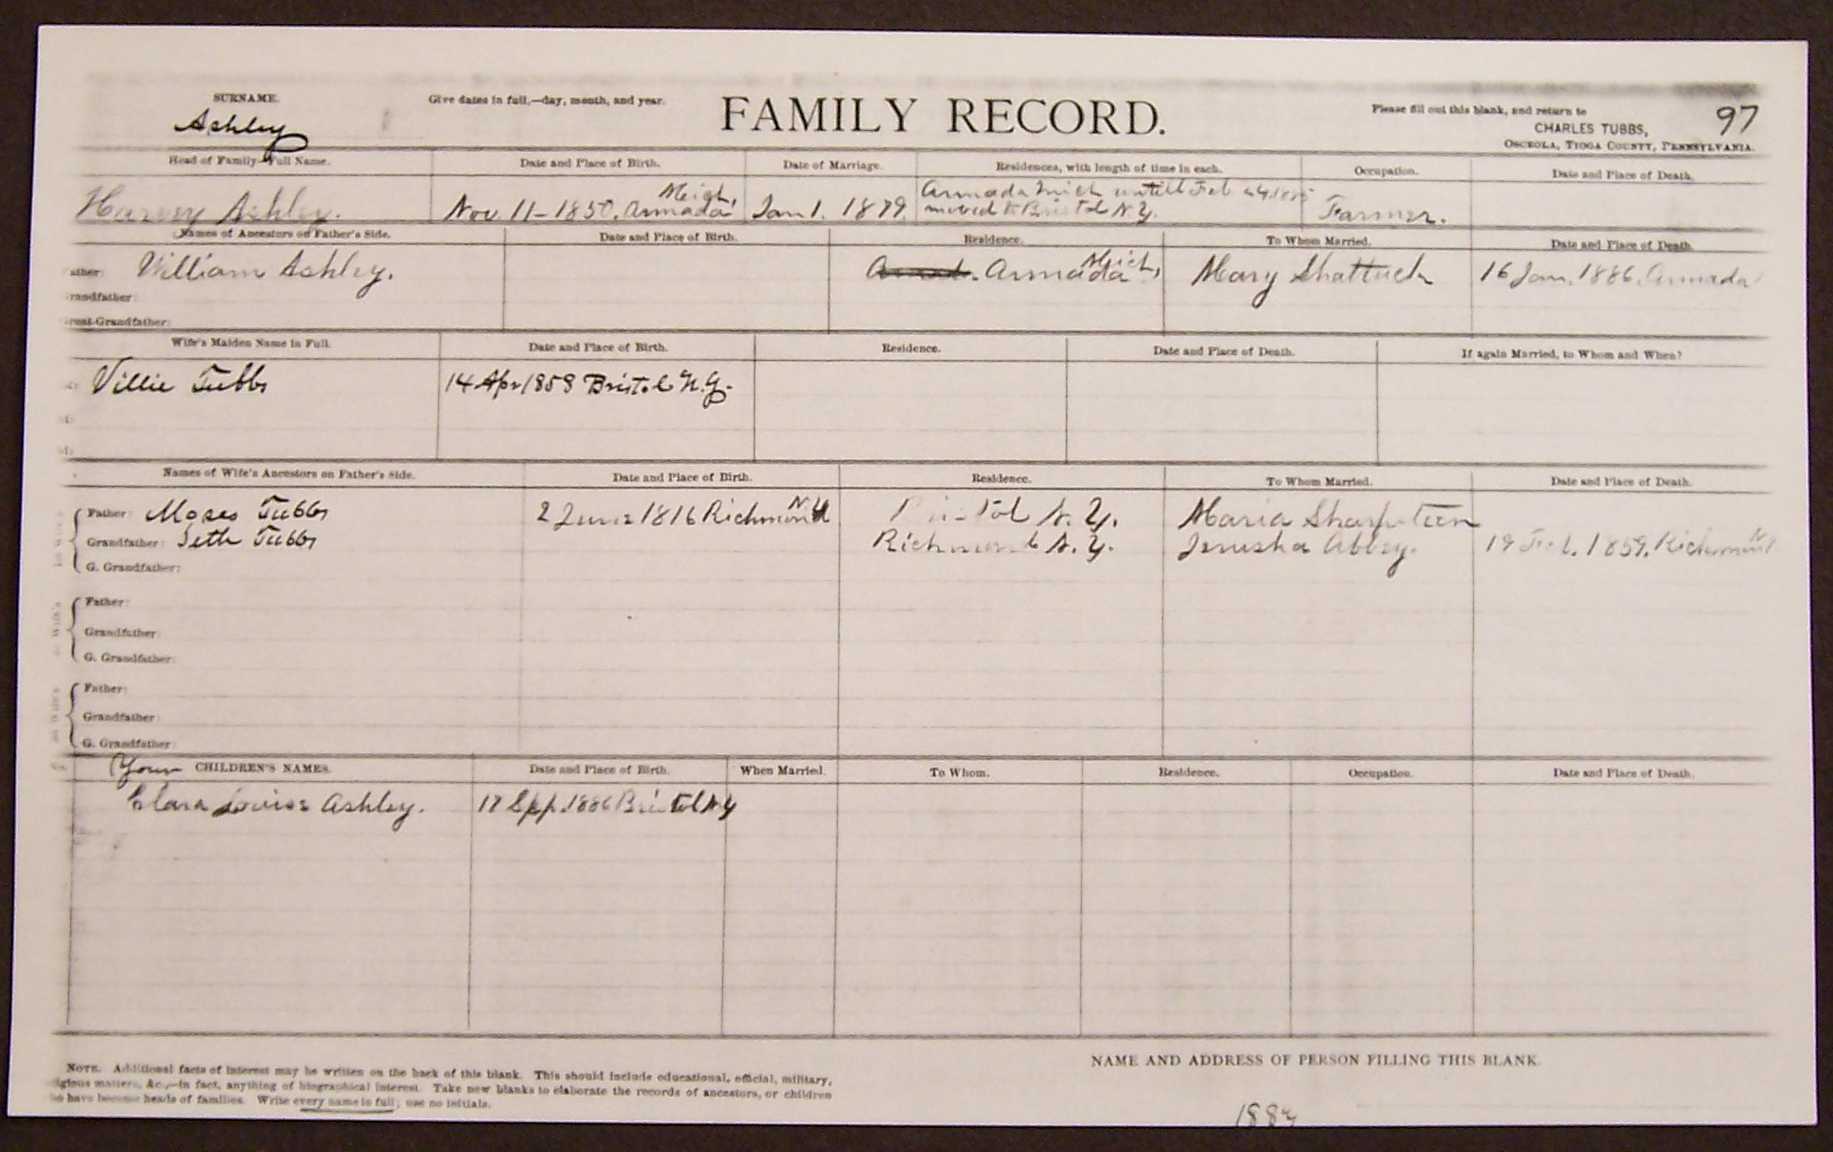 SURNAME.
Ashley
Give dates in full,—day, month, and year.
FAMILY RECORD.
Please fill out this blank, and return to
CHARLES TUBBS,
OSCEOLA, TIOGA COUNTY, PENNSYLVANIA.
97
Head of Family—Full Name. Date and Place of Birth. Date of Marriage. Residences, with length of time in each. Occupation. Date and Place of Death.
Harvey Ashley. Nov 11-1850. Armada Mich, Jan 1. 1879. Armada Mich untill Feb
moved to Bristol N.Y. Farmer.
Names of Ancestors on Father's Side. Date and Place of Birth. Residence. To Whom Married. Date and Place of Death.
ather: William Ashley. Armada Mich, Mary Shattuck 16 Jan. 1886. Armada
randfather:
reat-Grandfather:
Wife's Maiden Name in Full. Date and Place of Birth. Residence. Date and Place of Death. If again Married, to Whom and When?
Villie Tubbs 14 Apr 1858 Bristol N.Y.
Names of Wife's Ancestors on Father's Side. Date and Place of Birth. Residence. To Whom Married. Date and Place of Death.
Father: Moses Tubbs 2 June 1816 Richmond N.Y. Bristol N.Y. Maria Sharpsteen
Grandfather: Seth Tubbs Richmond N.Y. Jerusha Abbey. 19 Feb. 1859. Richmond N.Y.
G. Grandfather:
Father:
Grandfather:
G. Grandfather:
Father:
Grandfather:
G. Grandfather:
Your CHILDREN'S NAMES. Date and Place of Birth. When Married. To Whom. Residence. Occupation. Date and Place of Death.
Clara Louise Ashley. 17 Sep. 1886 Bristol N.Y
NOTE. Additional facts of interest may be written on the back of this blank. This should include educational, official, military,
igious matters, &c.,—in fact, anything of biographical interest. Take new blanks to elaborate the records of ancestors, or children
o have become heads of families. Write every name in full; use no initials.
NAME AND ADDRESS OF PERSON FILLING THIS BLANK.